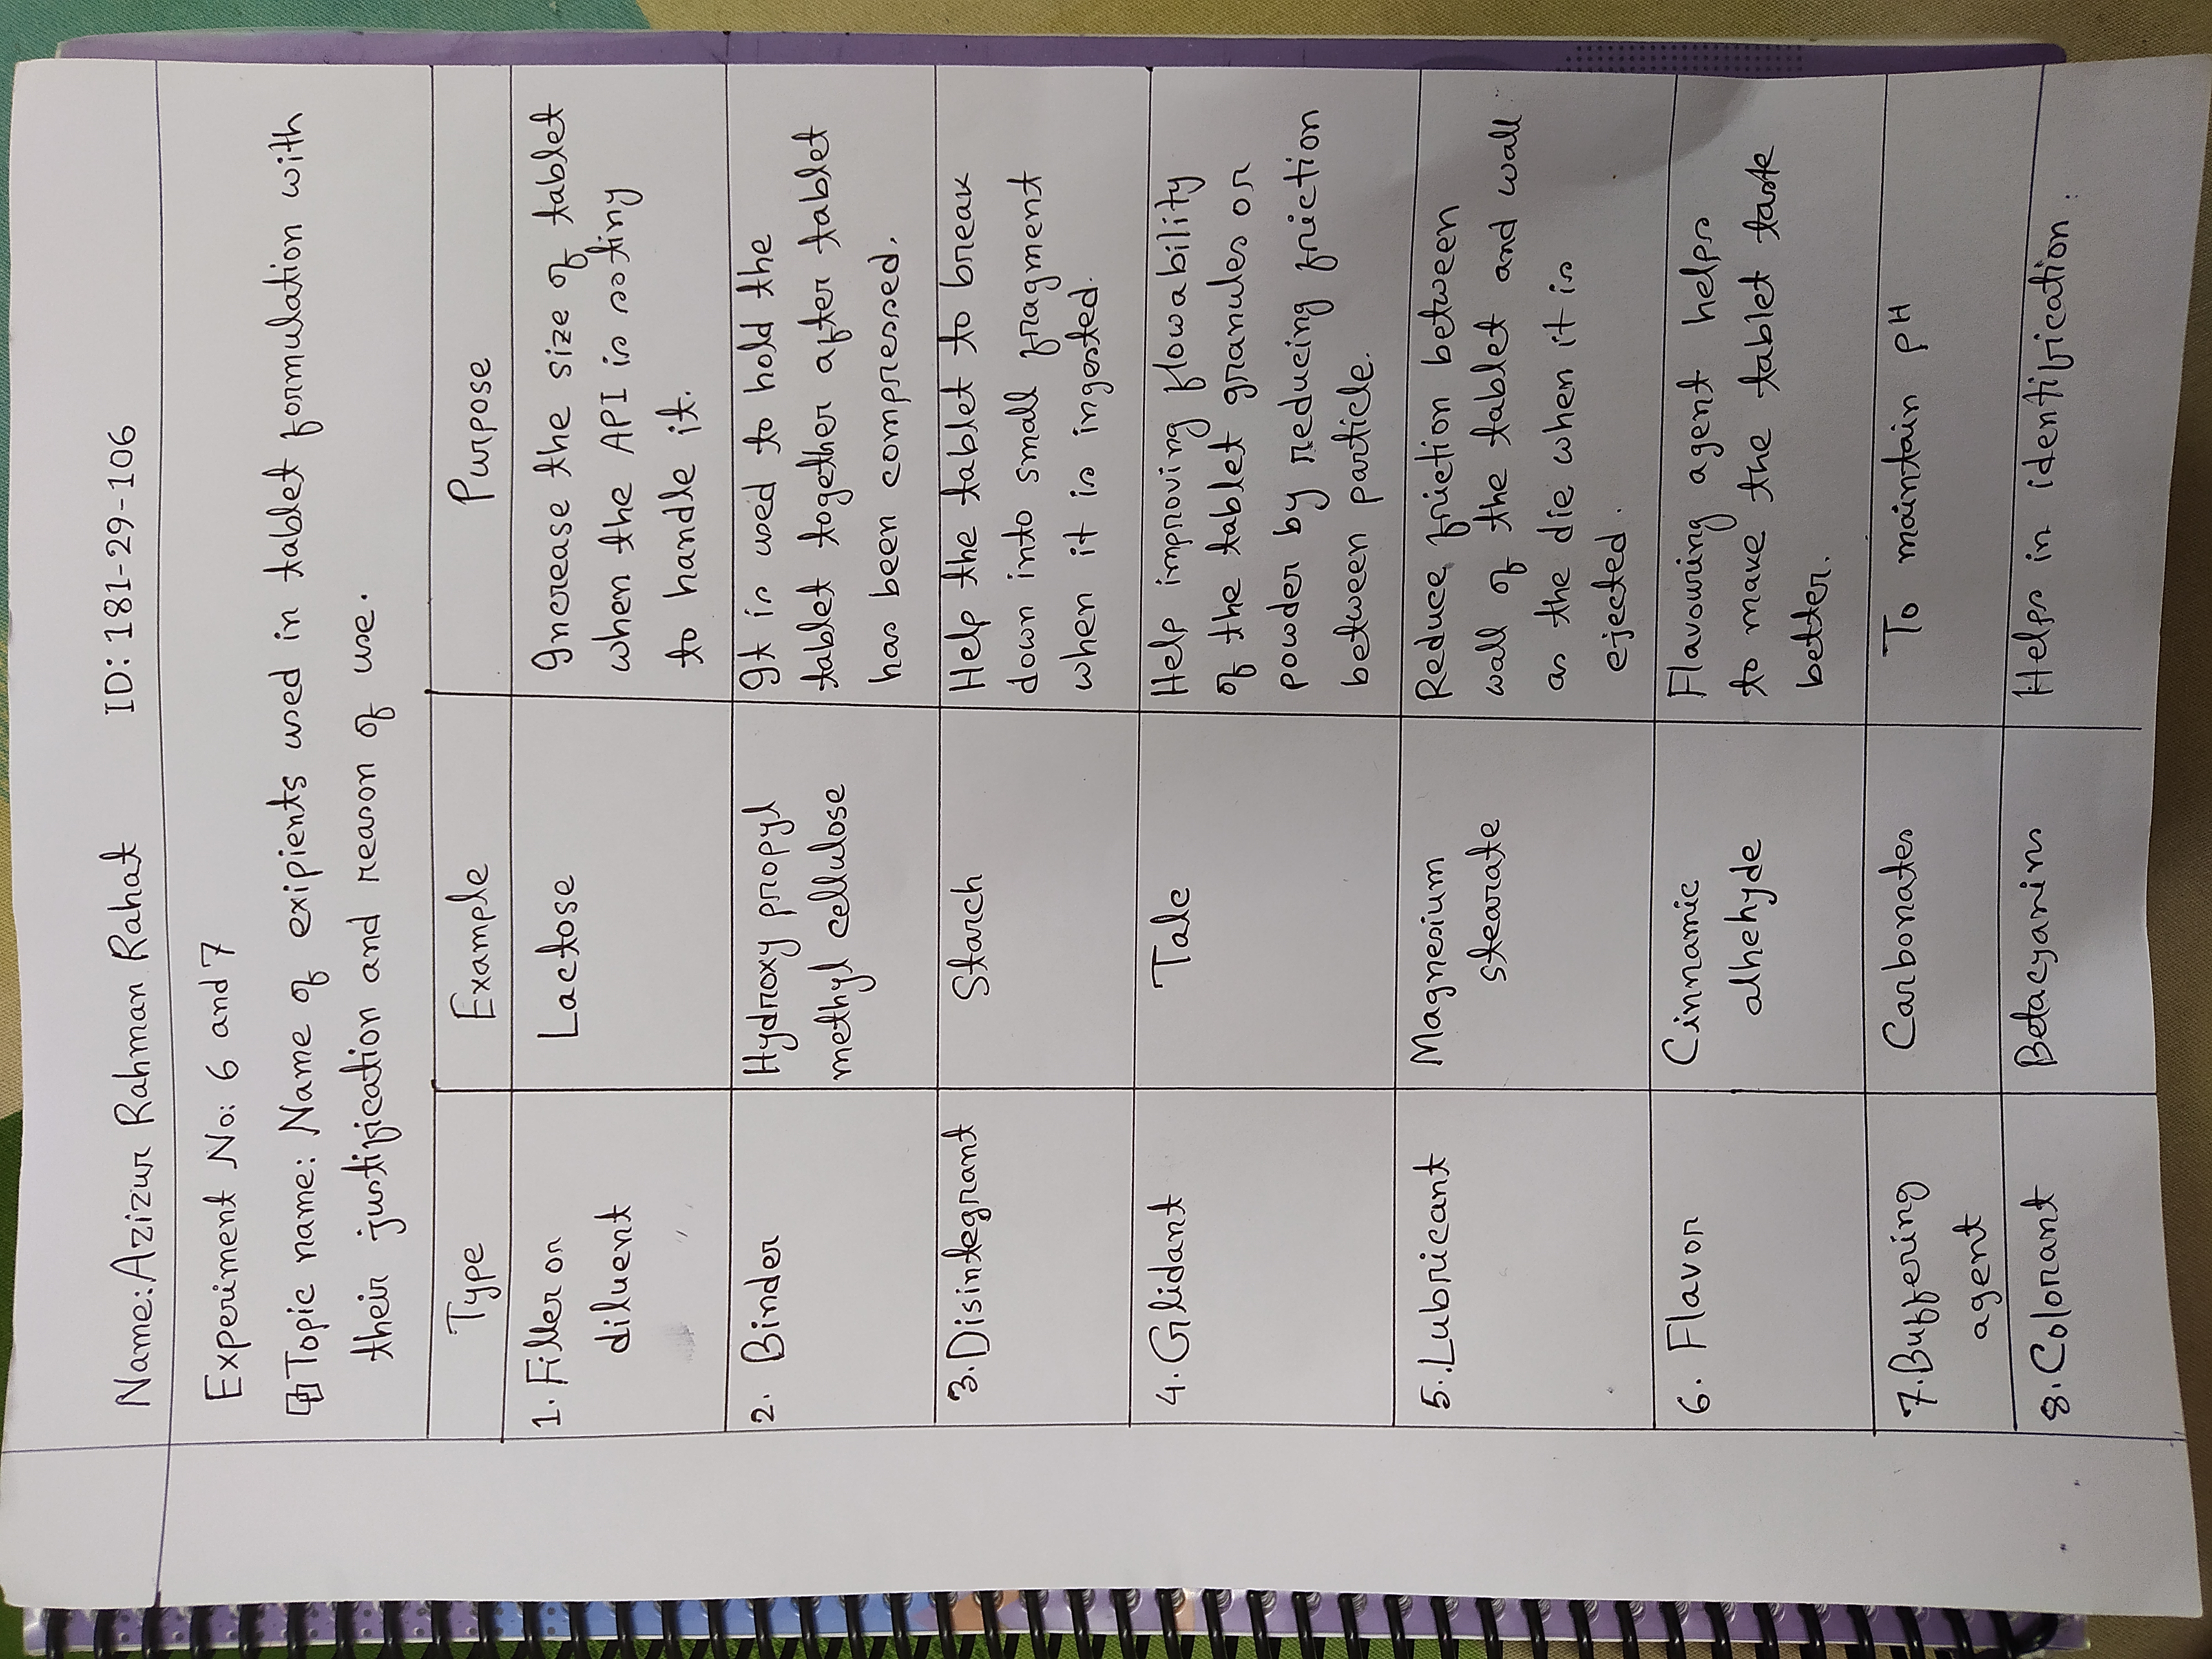 Name: Azizur Rahman Rahat ID: 181-29-106
Experiment No: 6 and 7
Topic name: Name of exipients used in tablet formulation with
their justification and reason of use.
Type Example Purpose
1. Filler or
diluent
Lactose
Increase the size of tablet
when the API is so tiny
to handle it.
2. Binder
Hydroxy propyl
methyl cellulose
It is used to hold the
tablet together after tablet
has been compressed.
3. Disintegrant
Starch
Help the tablet to break
down into small fragment
when it is ingested.
4. Glidant
Talc
Help improving flowability
of the tablet granules or
powder by reducing friction
between particle.
5. Lubricant
Magnesium
stearate
Reduce friction between
wall of the tablet and wall
as the die when it is
ejected.
6. Flavor
Cinnamic
alhehyde
Flavouring agent helps
to make the tablet taste
better.
7. Buffering
agent
Carbonates
To maintain pH
8. Colorant
Betacyanins
Helps in identification.